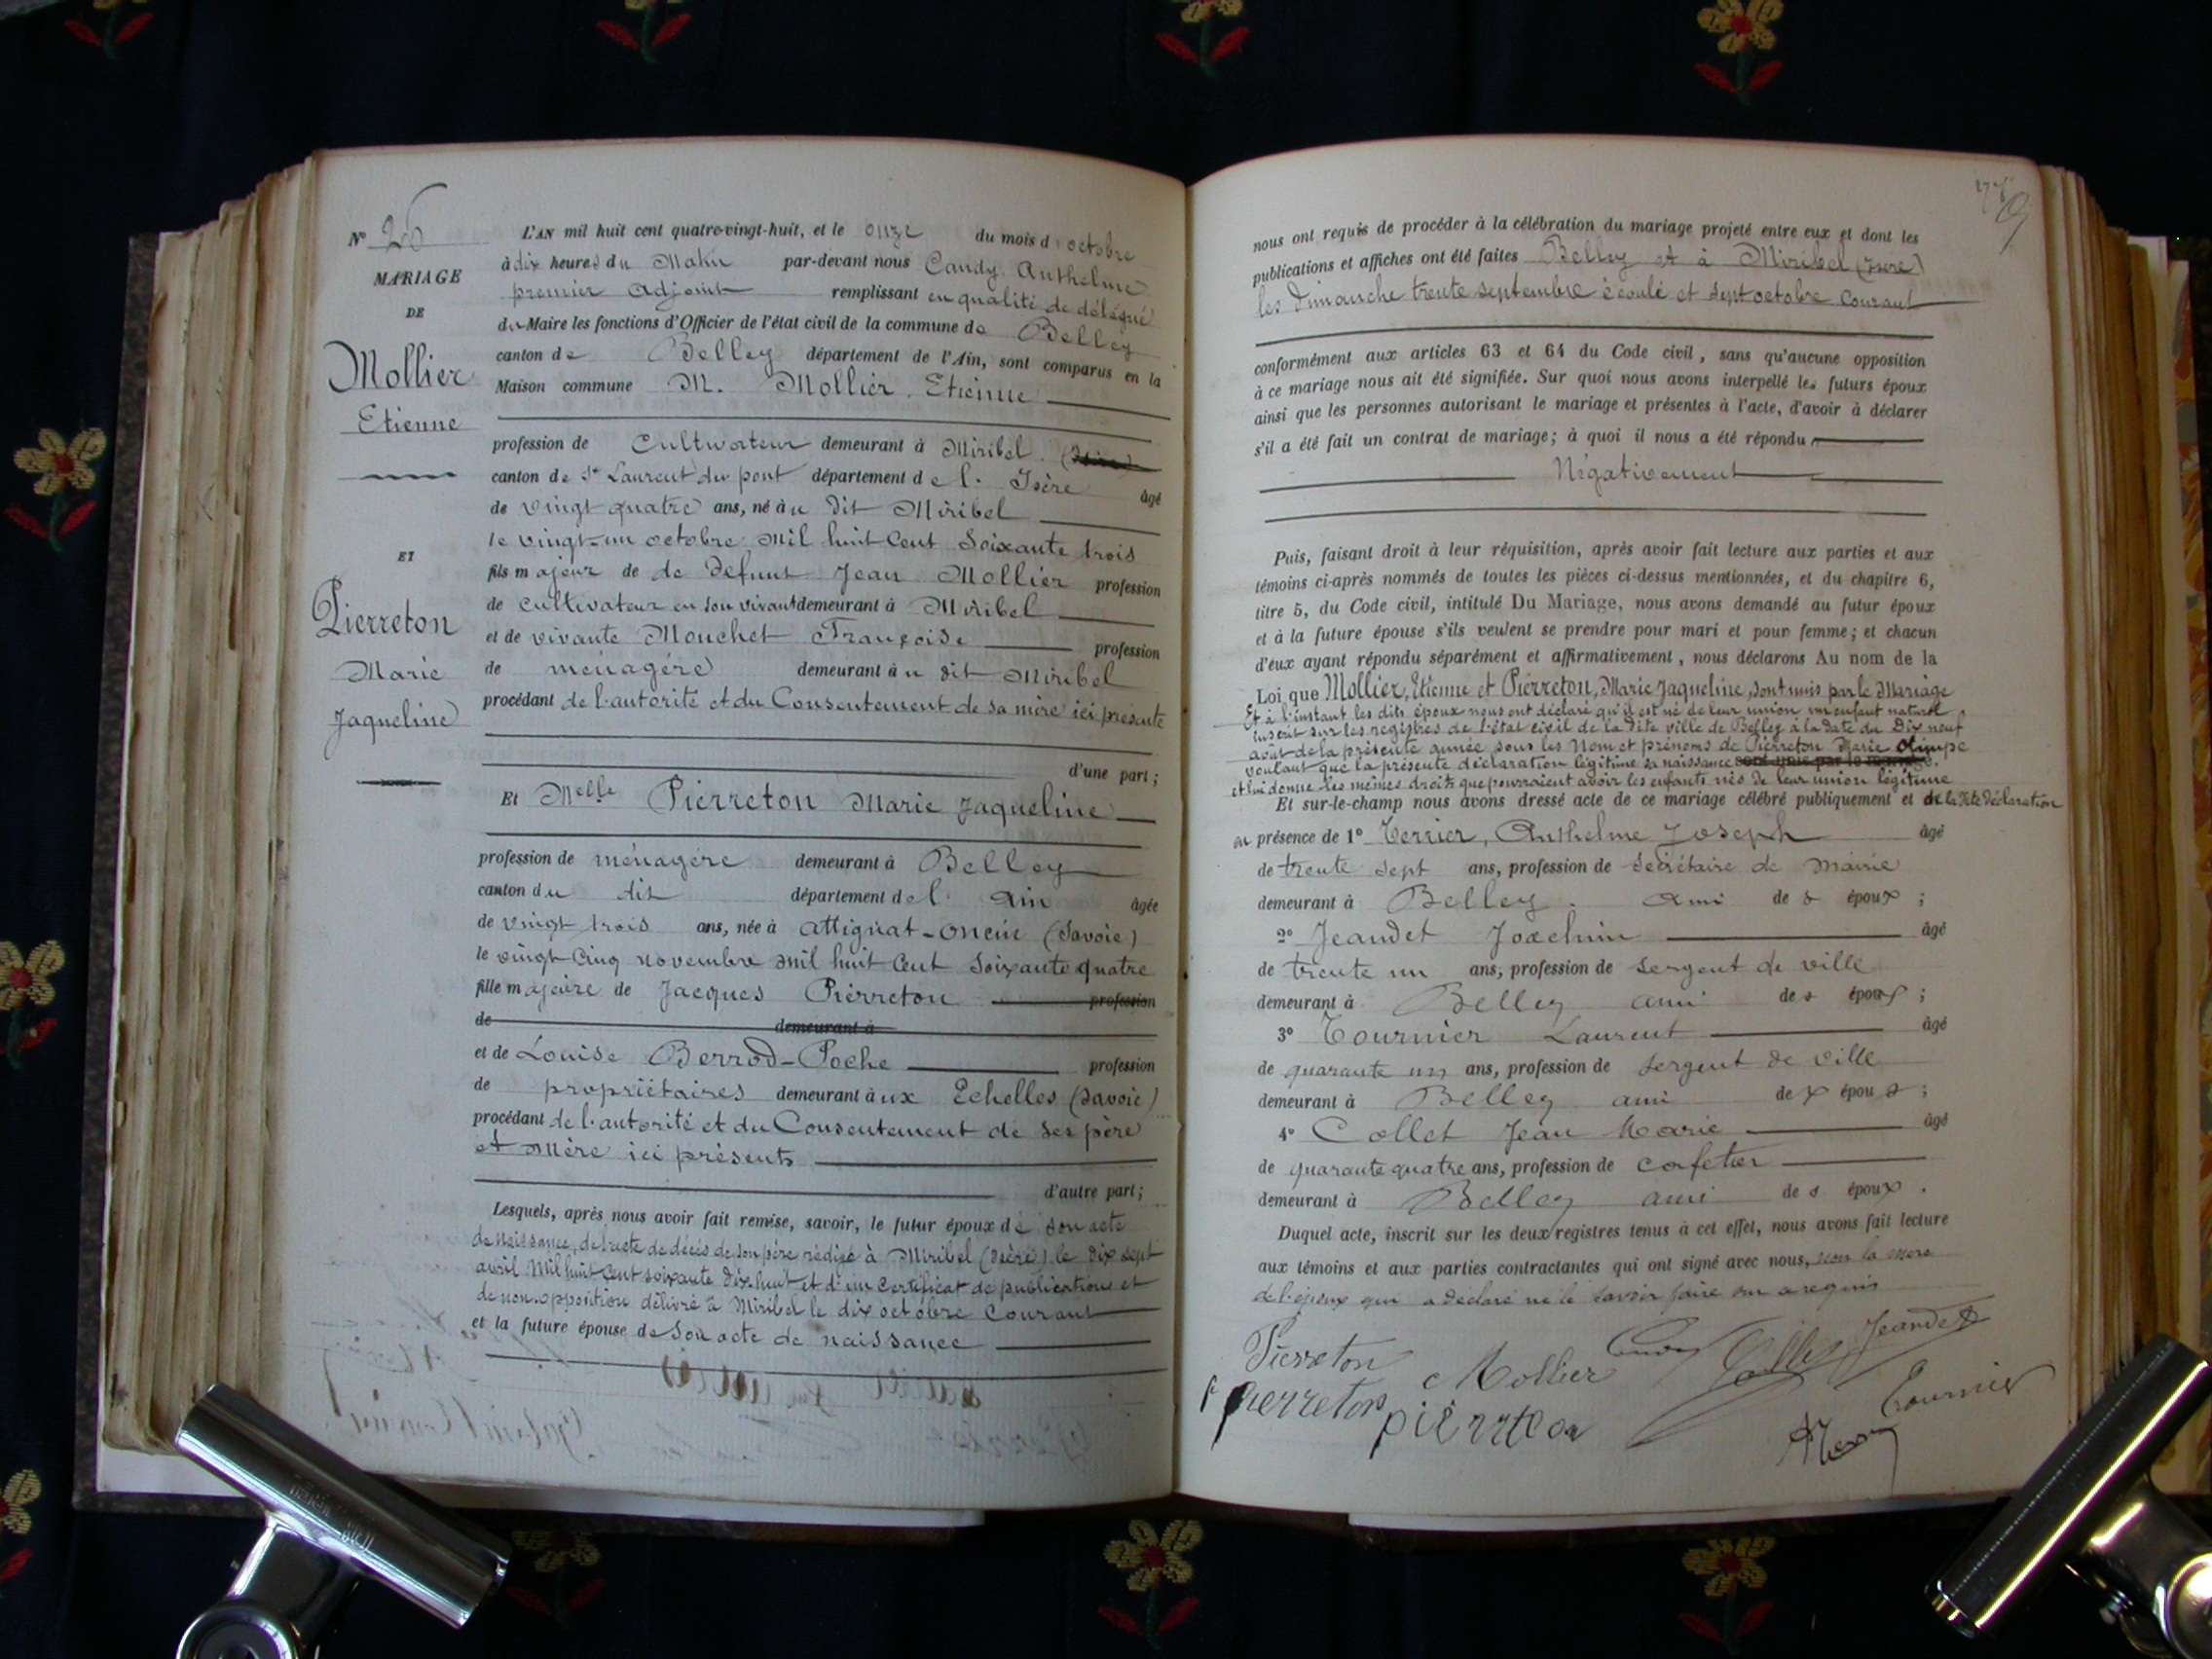 N° 26
MARIAGE
DE
Mollier
Etienne
ET
Pierreton
Marie
Jaqueline
L'AN mil huit cent quatre-vingt-huit, et le onze du mois d'octobre
à dix heures du Matin par-devant nous Candy Anthelme
premier adjoint remplissant en qualité de délégué
du Maire les fonctions d'Officier de l'état civil de la commune de Belley
canton de Belley département de l'Ain, sont comparus en la
Maison commune M. Mollier Etienne
profession de Cultivateur demeurant à Miribel
canton de St Laurent du pont département de l'Isère âgé
de vingt quatre ans, né à u dit Miribel
le vingt-un octobre mil huit Cent Soixante trois
fils majeur de de défunt Jean Mollier profession
de cultivateur en son vivant demeurant à Miribel
et de vivante Mouchet Françoise profession
de ménagère demeurant à u dit Miribel
procédant de l'autorité et du Consentement de sa mère ici présente
d'une part;
Et Melle Pierreton Marie Jaqueline
profession de ménagère demeurant à Belley
canton du dit département de l'Ain âgée
de vingt trois ans, née à attignat-oncin (Savoie)
le vingt Cinq novembre mil huit Cent Soixante quatre
fille majeure de Jacques Pierreton profession
de demeurant à
et de Louise Berrod-Poche profession
de propriétaires demeurant à ux Echelles (Savoie)
procédant de l'autorité et du Consentement de ses père
et Mère ici présents
d'autre part;
Lesquels, après nous avoir fait remise, savoir, le futur époux de son acte
de naissance, de l'acte de décès de son père rédigé à Miribel (Isère) le dix sept
avril Mil huit Cent soixante dix huit et d'un certificat de publication et
de non-opposition délivré à Miribel le dix octobre Courant
et la future épouse de Son acte de naissance
nous ont requis de procéder à la célébration du mariage projeté entre eux et dont les
publications et affiches ont été faites Belley et à Miribel (Isère)
les Dimanche trente septembre écoulé et sept octobre Courant
conformément aux articles 63 et 64 du Code civil, sans qu'aucune opposition
à ce mariage nous ait été signifiée. Sur quoi nous avons interpellé les futurs époux
ainsi que les personnes autorisant le mariage et présentes à l'acte, d'avoir à déclarer
s'il a été fait un contrat de mariage; à quoi il nous a été répondu
Négativement
Puis, faisant droit à leur réquisition, après avoir fait lecture aux parties et aux
témoins ci-après nommés de toutes les pièces ci-dessus mentionnées, et du chapitre 6,
titre 5, du Code civil, intitulé Du Mariage, nous avons demandé au futur époux
et à la future épouse s'ils veulent se prendre pour mari et pour femme; et chacun
d'eux ayant répondu séparément et affirmativement, nous déclarons Au nom de la
Loi que Mollier, Etienne et Pierreton, Marie Jaqueline, sont unis par le Mariage
Et à l'instant les dits époux nous ont déclaré qu'il est né de leur union un enfant naturel
inscrit sur les registres de l'état civil de la dite ville de Belley à la date du Dix neuf
août de la présente année sous les Nom et prénoms de Pierreton Marie Olimpe
voulant que la présente déclaration légitime sa naissance
et lui donne les mêmes droits que pourraient avoir les enfants nés de leur union légitime
Et sur-le-champ nous avons dressé acte de ce mariage célébré publiquement et de la dite déclaration
en présence de 1° Terrier, Anthelme Joseph âgé
de trente sept ans, profession de Secrétaire de Mairie
demeurant à Belley ami de s époux ;
2° Jeandet Joachim âgé
de trente un ans, profession de Sergent de ville
demeurant à Belley ami de s époux ;
3° Tournier Laurent âgé
de quarante un ans, profession de Sergent de ville
demeurant à Belley ami de s époux ;
4° Collet Jean Marie âgé
de quarante quatre ans, profession de cafetier
demeurant à Belley ami de s époux .
Duquel acte, inscrit sur les deux registres tenus à cet effet, nous avons fait lecture
aux témoins et aux parties contractantes qui ont signé avec nous, non la mère
de l'époux qui a déclaré ne le savoir faire sur ce requis
Pierreton Mollier Candy Collet Jeandet
Pierreton pierrteon Tournier